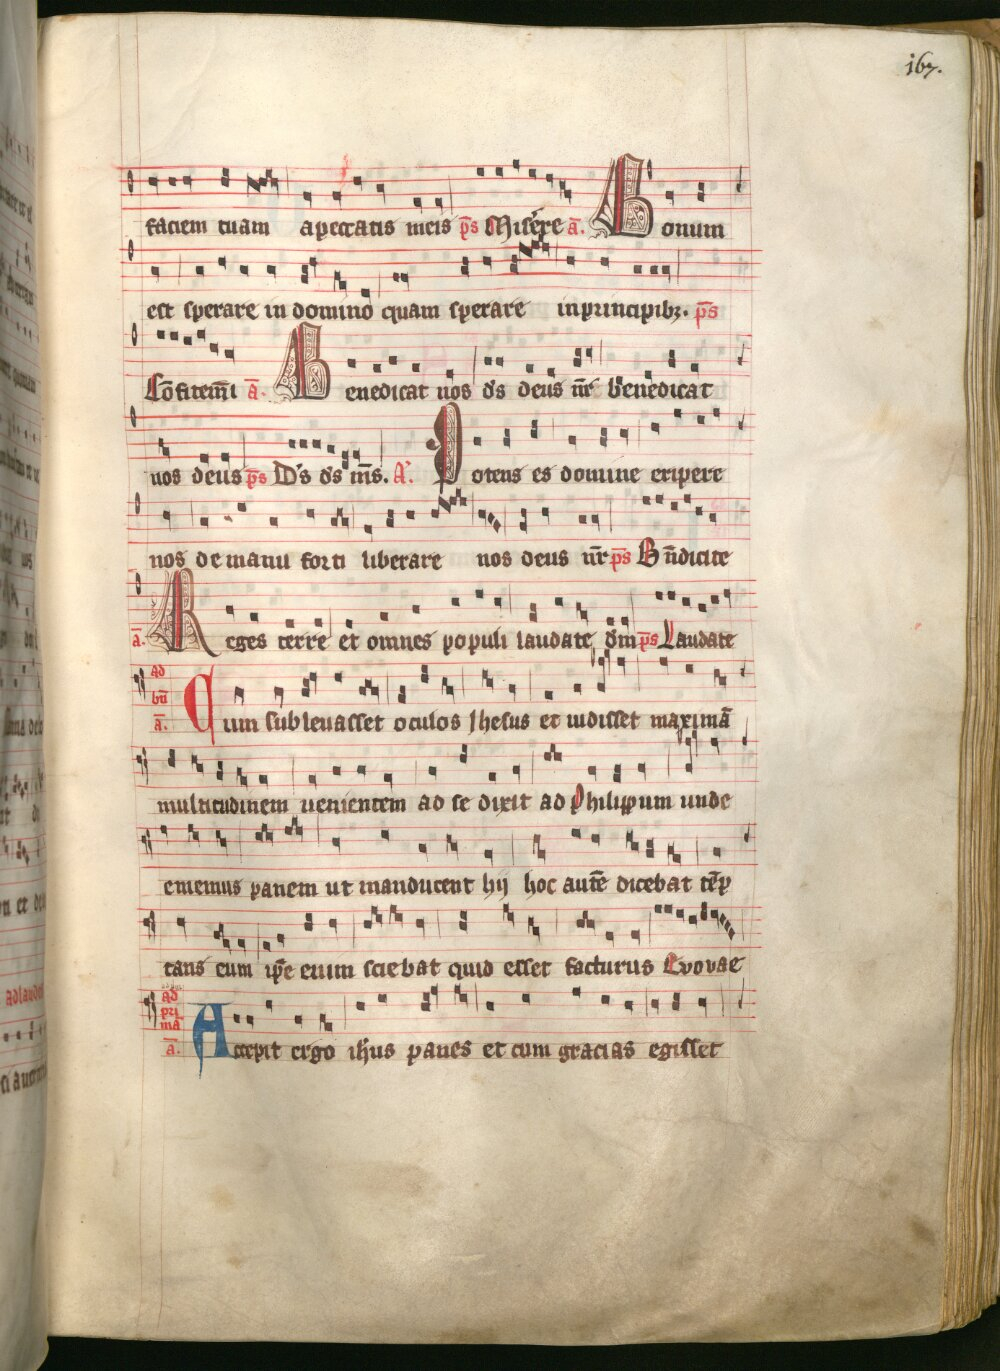 167.
faciem tuam a peccatis meis p̄s Miserere ā. Bonum
est sperare in domino quam sperare in principibꝫ. p̄s
Cōfitemī ā. Benedicat nos d̄s deus nr̄ benedicat
nos deus p̄s D̄s d̄s m̄s. A. Potens es domine eripere
nos de manu forti liberare nos deus nr̄ p̄s Bn̄dicite
ā. Reges terre et omnes populi laudate dm̄ p̄s Laudate
ad bn̄ ā. Cum subleuasset oculos Jhesus et uidisset maximā
multitudinem uenientem ad se dixit ad Philippum unde
ememus panem ut manducent hij hoc autē dicebat tēp
tans eum ip̄e enim sciebat quid esset facturus Evovae
ad pri mā ā. Accepit ergo ih̄us panes et cum gracias egisset